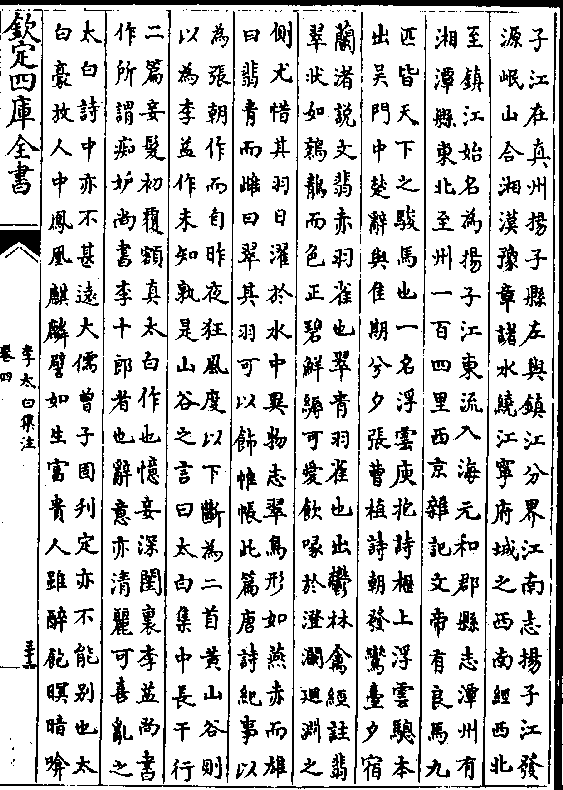 子江在真州揚子縣左與鎮江分界江南志揚子江發
源岷山合湘漢豫章諸水繞江寧府城之西南經西北
至鎮江始名為揚子江東流入海元和郡縣志潭州有
湘潭縣東北至州一百四里西京雜記文帝有良馬九
匹皆天下之駿馬也一名浮雲庾抱詩櫪上浮雲驄本
出吳門中楚辭與佳期兮夕張曹植詩朝發鸞臺夕宿
蘭渚説文翡赤羽雀也翠青羽雀也出鬱林禽經註翡
翠狀如鵁鶄而色正碧鮮縟可愛飲啄於澄瀾迴淵之
側尤惜其羽日濯於水中異物志翠鳥形如燕赤而雄
曰翡青而雌曰翠其羽可以飾帷帳此篇唐詩紀事以
為張朝作而自昨夜狂風度以下斷為二首黄山谷則
以為李益作未知孰是山谷之言曰太白集中長干行
二篇妾髮初覆額真太白作也憶妾深閨裏李益尚書
作所謂痴妒尚書李十郎者也辭意亦清麗可喜亂之
太白詩中亦不甚遠大儒曾子固刋定亦不能别也太
白豪放人中鳳凰麒麟譬如生富貴人雖醉飽暝暗啽
欽定四庫全書
李太白集注
卷四